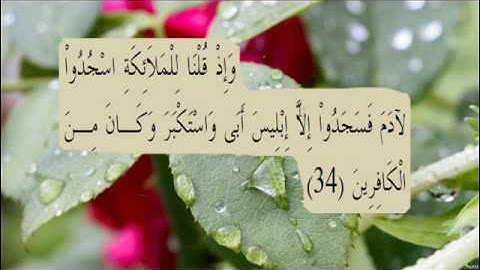 وَإِذْ قُلْنَا لِلْمَلاَئِكَةِ اسْجُدُواْ
لآدَمَ فَسَجَدُواْ إِلاَّ إِبْلِيسَ أَبَى وَاسْتَكْبَرَ وَكَــانَ مِــنَ
الْكَافِرِينَ (34)